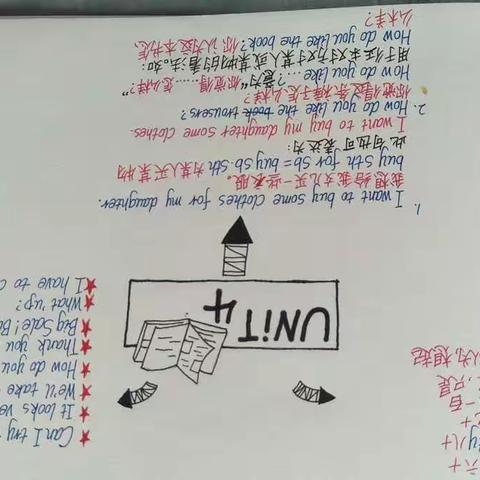 六十
ty 八十
一百
，只是
认为, 想起
Can I try
It looks ve
We'll take
How do you
Thank you
Big Sale! B
What 'up?
I have to c
UNiT 4
1. I want to buy some clothes for my daughter.
我想给我女儿买一些衣服。
buy sth for sb = buy sb. sth 为某人买某物
此句也可表达为:
I want to buy my daughter some clothes.
2. How do you like the book trousers?
你觉得这条裤子怎么样?
How do you like ...?意为"你觉得……怎么样?"
用于征求对方对某人或某物的看法。如:
How do you like the book? 你认为这本书怎
么样?